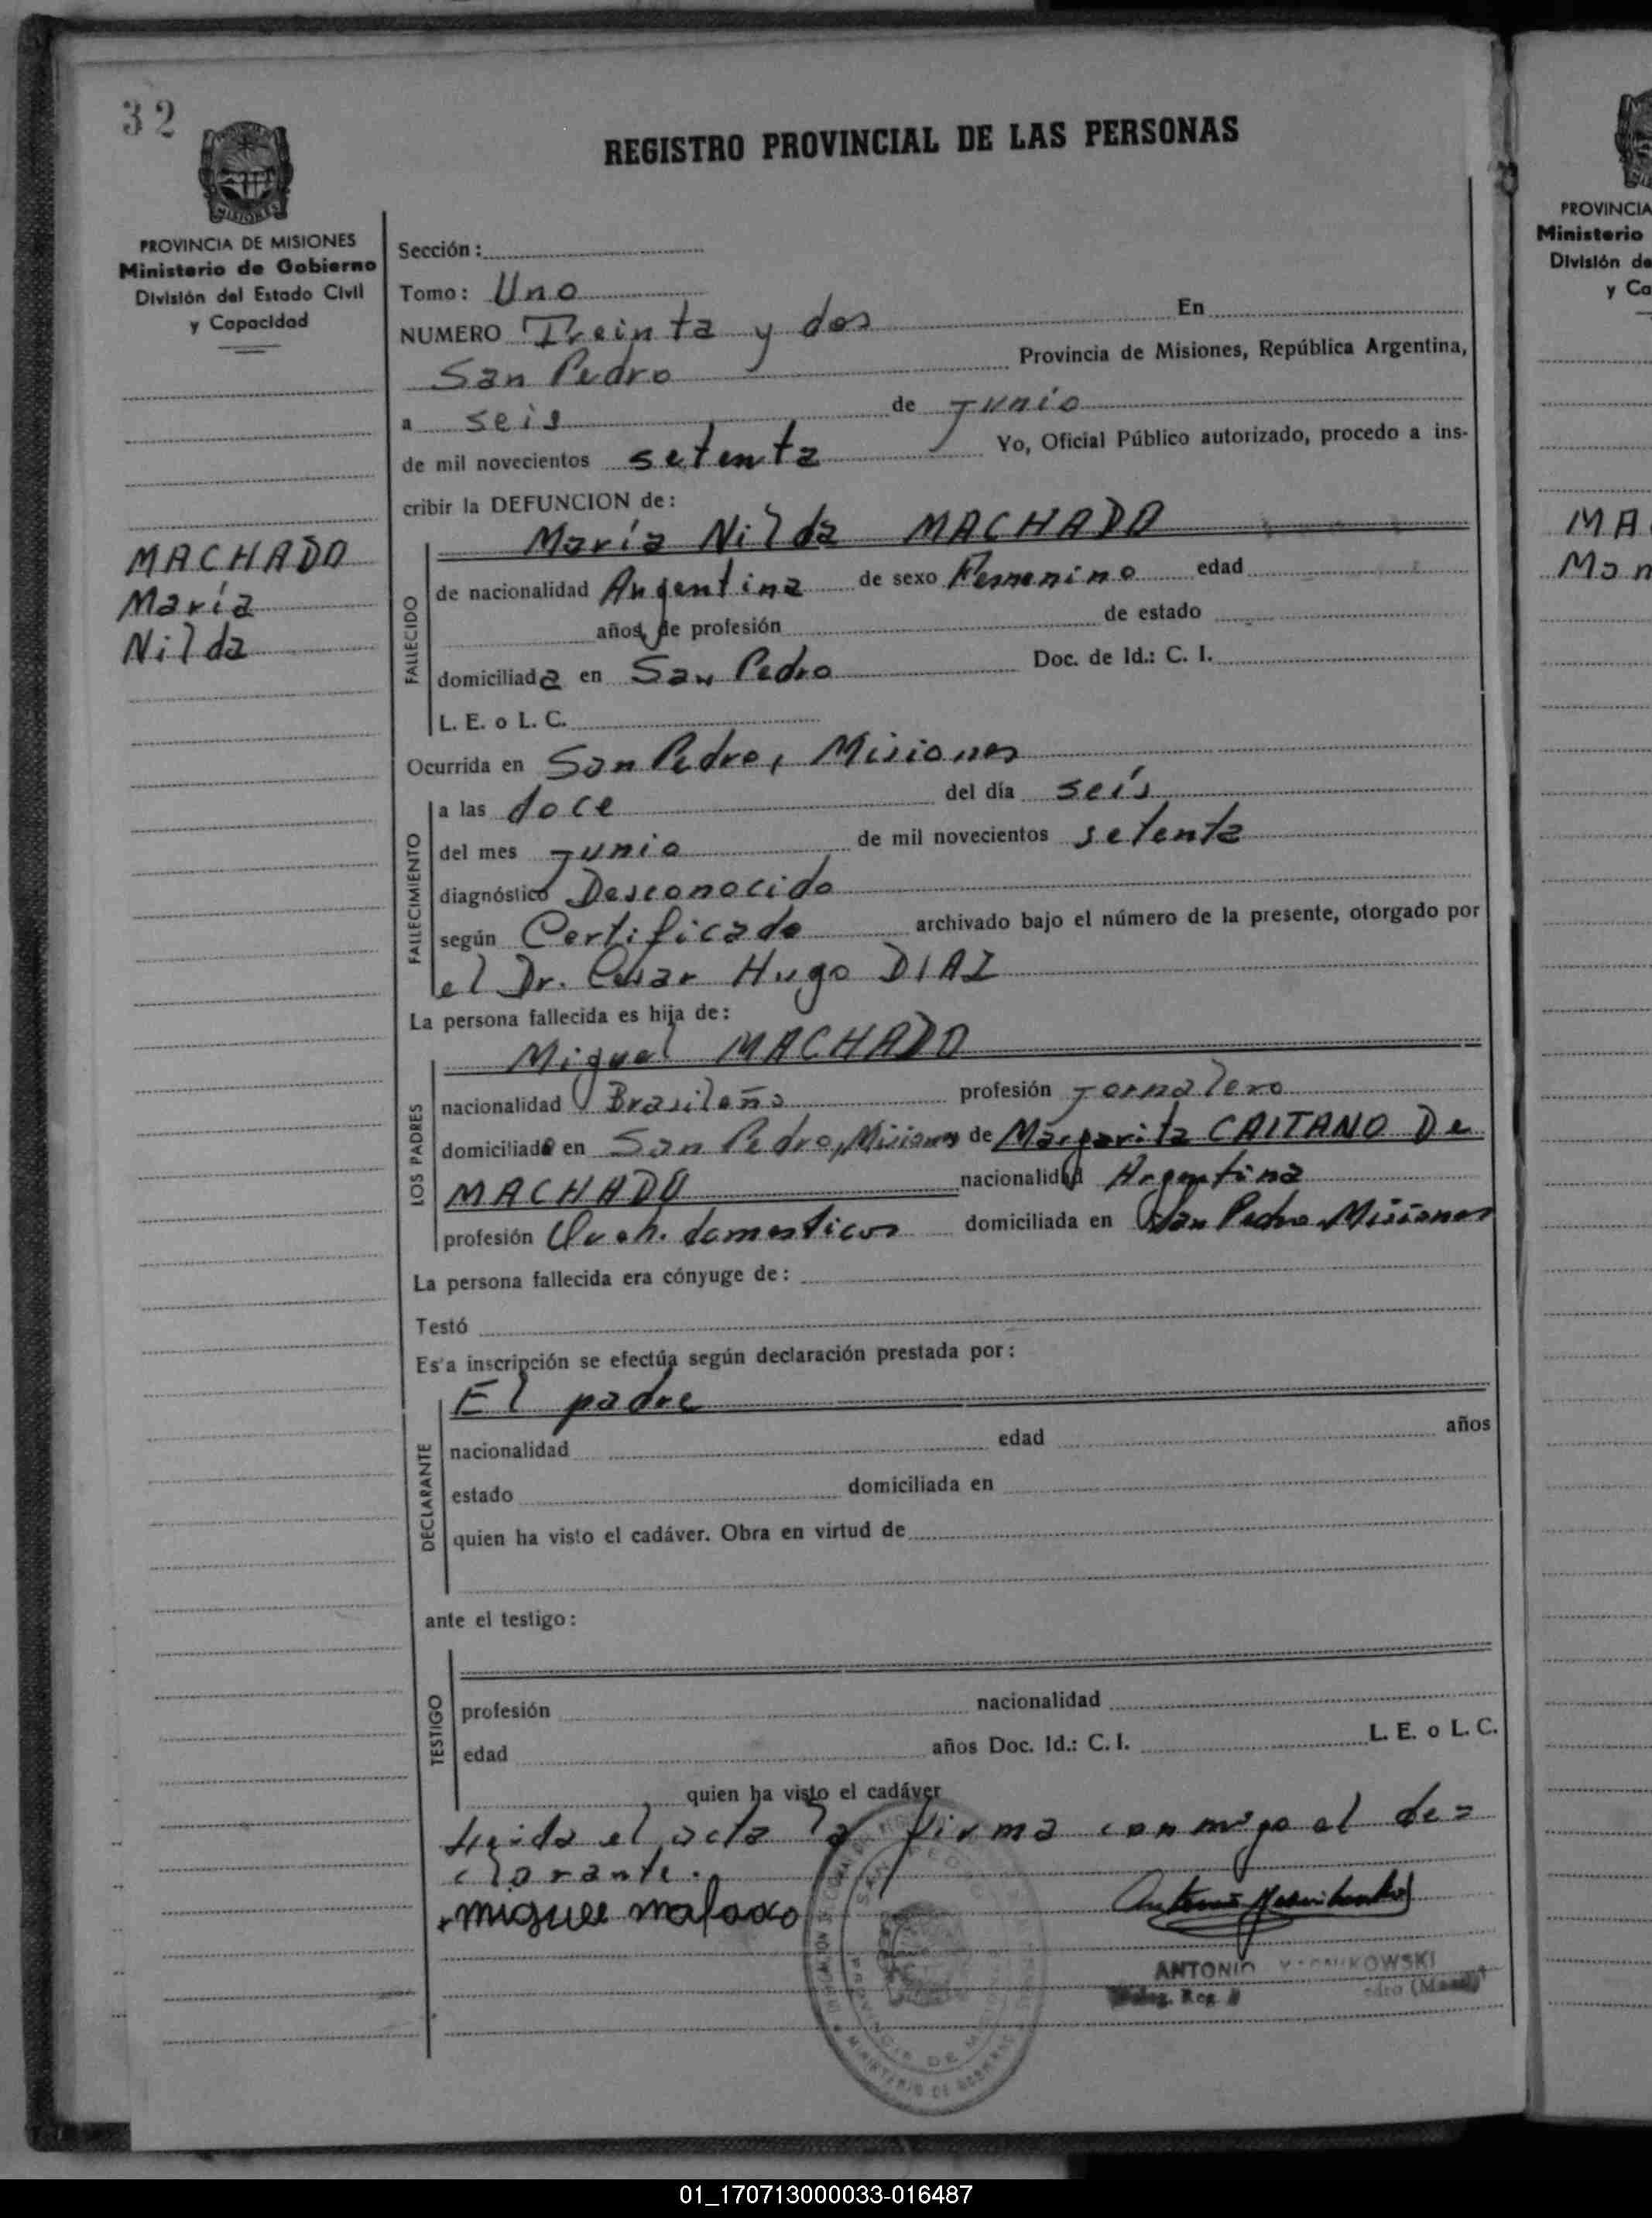 32
REGISTRO PROVINCIAL DE LAS PERSONAS
MISIONES
PROVINCIA DE MISIONES
Ministerio de Gobierno
División del Estado Civil
y Capacidad
MACHADO
María
Nilda
Sección:
Tomo: Uno
NUMERO Treinta y dos En
San Pedro Provincia de Misiones, República Argentina,
a seis de Junio
de mil novecientos setenta Yo, Oficial Público autorizado, procedo a ins-
cribir la DEFUNCION de:
María Nilda MACHADO
FALLECIDO
de nacionalidad Argentina de sexo Femenino edad
años, de profesión de estado
domiciliada en San Pedro Doc. de Id.: C. I.
L. E. o L. C.
Ocurrida en San Pedro, Misiones
FALLECIMIENTO
a las doce del día seis
del mes Junio de mil novecientos setenta
diagnóstico Desconocido
según Certificado archivado bajo el número de la presente, otorgado por
el Dr. Cesar Hugo DIAZ
La persona fallecida es hija de:
Miguel MACHADO
LOS PADRES
nacionalidad Brasileño profesión Jornalero
domiciliado en San Pedro, Misiones de Margarita CAITANO De
MACHADO nacionalidad Argentina
profesión Queh. domesticos domiciliada en San Pedro Misiones
La persona fallecida era cónyuge de:
Testó
Es'a inscripción se efectúa según declaración prestada por:
El padre
DECLARANTE
nacionalidad edad años
estado domiciliada en
quien ha visto el cadáver. Obra en virtud de
ante el testigo:
TESTIGO
profesión nacionalidad
edad años Doc. Id.: C. I. L. E. o L. C.
quien ha visto el cadáver
Leida el acta la firma conmigo el de=
clarante.
miguel
ANTONIO
PROVINCIA DE
MINISTERIO DE GOBIERNO
PROVINCIA
Ministerio
División de
y Ca
MA
Mar
01_170713000033-016487